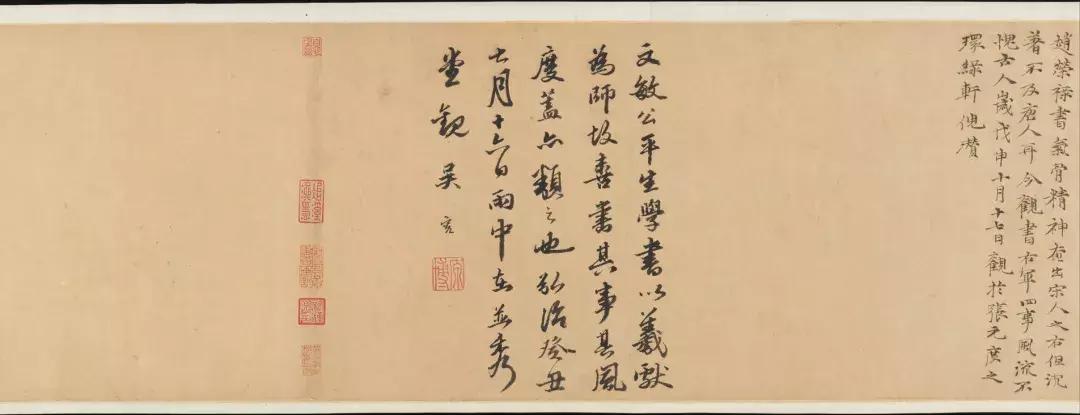 趙榮祿書氣骨精神在出宋人之右但沉
著不及唐人耳今觀書右軍四事風流不
愧古人歲戊申十月十七日觀於張元度之
環綠軒倪瓚
文敏公平生學書以羲獻
為師故喜書其事其風
度蓋亦類之也弘治癸丑
七月十六日雨中在益秀
堂觀吳寬
原博